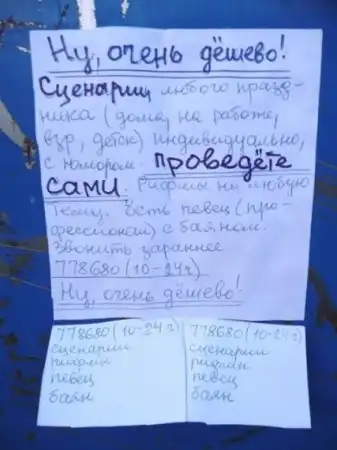 Ну, очень дёшево!
Сценарии любого празд-
ника (дома, на работе,
взр, детск) индивидуально,
с юмором. проведёте
сами. Рифмы на любую
тему. Есть певец (про-
фессионал) с баяном.
Звонить заранее
778680 (10-24ч)
Ну, очень дёшево!
778680 (10-24ч)
сценарии
рифмы
певец
баян
778680 (10-24ч)
сценарии
певец
баян